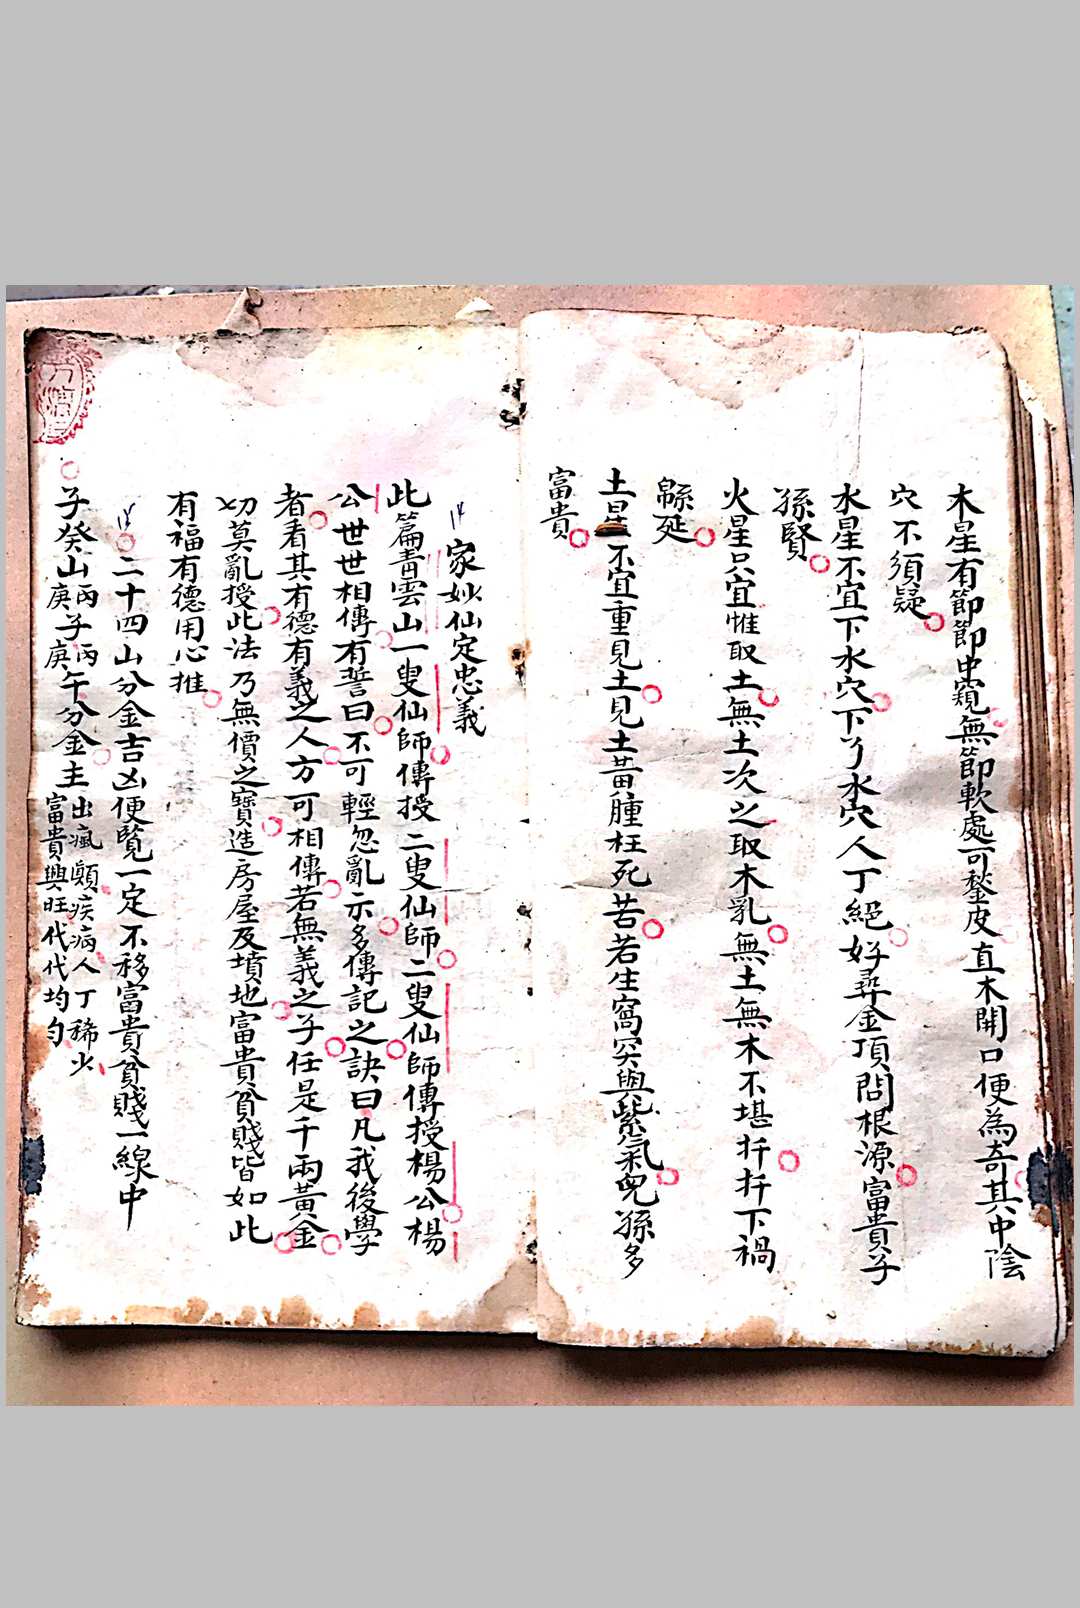 木星有節節中窺無節軟處可鏊皮直木開口便為奇其中陰
穴不須疑
水星不宜下水穴下了水穴人丁絕好尋金頂問根源富貴子
孫賢
火星只宜惟取土無土次之取木乳無土無木不堪扦扦下禍
緜延
土星不宜重見土見土黃腫枉死苦若生窩穾與紫氣兒孫多
富貴
家妙仙定忠義
此篇青雲山一叟仙師傳授二叟仙師二叟仙師傳授楊公楊
公世世相傳有誓曰不可輕忽亂示多傳記之訣曰凡我後學
者看其有德有義之人方可相傳若無義之子任是千兩黃金
切莫亂授此法乃無價之寶造房屋及墳地富貴貧賤皆如此
有福有德用心推
二十四山分金吉凶便覧一定不移富貴貧賤一線中
子癸山丙子丙午分金主出瘋顛疾病人丁稀少
庚庚富貴興旺代代均勻